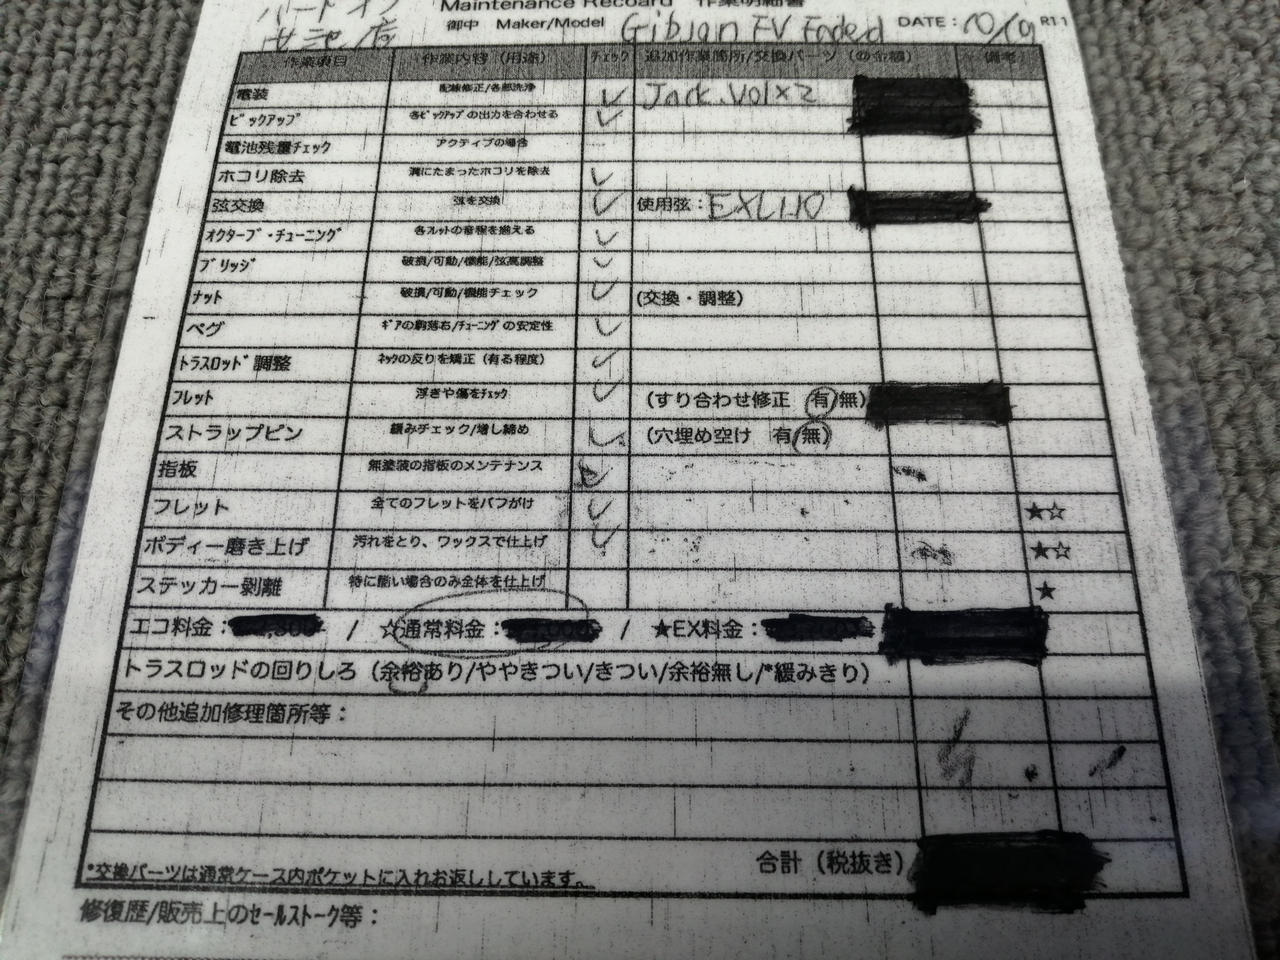 ハードオフ Maintenance Recoard 作業明細書
御中 Maker/Model Gibson FV Faded DATE: 10/9 R11
作業項目 作業内容（用途） チェック 追加作業箇所/交換パーツ（の金額） 備考
電装 配線修正/各部洗浄 ✓ Jack.Vol×2
ﾋﾟｯｸｱｯﾌﾟ 各ﾋﾟｯｸｱｯﾌﾟの出力を合わせる ✓
電池残量ﾁｪｯｸ アクティブの場合
ホコリ除去 溝にたまったホコリを除去 ✓
弦交換 弦を交換 ✓ 使用弦：EXL110
ｵｸﾀｰﾌﾞ・ﾁｭｰﾆﾝｸﾞ 各ﾌﾚｯﾄの音程を揃える ✓
ﾌﾞﾘｯｼﾞ 破損/可動/機能/弦高調整 ✓
ﾅｯﾄ 破損/可動/機能チェック ✓ (交換・調整)
ペグ ｷﾞｱの駒落右/ﾁｭｰﾆﾝｸﾞの安定性 ✓
ﾄﾗｽﾛｯﾄﾞ調整 ﾈｯｸの反りを矯正（有る程度） ✓
ﾌﾚｯﾄ 浮きや傷をﾁｪｯｸ ✓ (すり合わせ修正 有/無)
ストラップピン 緩みチェック/増し締め ✓ (穴埋め空け 有/無)
指板 無塗装の指板のメンテナンス ✓
フレット 全てのフレットをバフがけ ✓ ★☆
ボディー磨き上げ 汚れをとり、ワックスで仕上げ ✓ ★☆
ステッカー剥離 特に酷い場合のみ全体を仕上げ ★
エコ料金： / ☆通常料金： / ★EX料金：
トラスロッドの回りしろ（余裕あり/ややきつい/きつい/余裕無し/*緩みきり）
その他追加修理箇所等：
合計（税抜き）
*交換パーツは通常ケース内ポケットに入れお返ししています。
修復歴/販売上のｾｰﾙｽﾄｰｸ等：